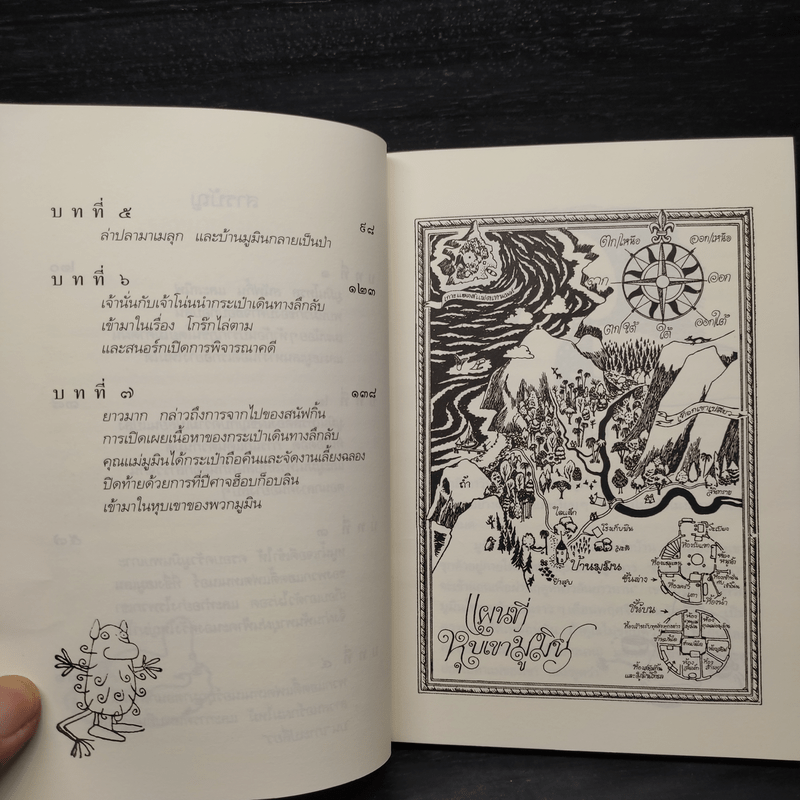 บทที่ ๕
๙๘
ล่าปลามาเมลุก และบ้านมูมินกลายเป็นป่า
บทที่ ๖
๑๒๓
เจ้านั่นกับเจ้าโน่นนำกระเป๋าเดินทางลึกลับ
เข้ามาในเรื่อง โกร๊กไล่ตาม
และสนอร์กเปิดการพิจารณาคดี
บทที่ ๗
๑๓๘
ยาวมาก กล่าวถึงการจากไปของสนัฟกิ้น
การเปิดเผยเนื้อหาของกระเป๋าเดินทางลึกลับ
คุณแม่มูมินได้กระเป๋าถือคืนและจัดงานเลี้ยงฉลอง
ปิดท้ายด้วยการที่ปีศาจฮ็อบก็อบลิน
เข้ามาในหุบเขาของพวกมูมิน
ตก/เหนือ
ออก/เหนือ
ตก
ออก
ตก/ใต้
ใต้
ออก/ใต้
ถ้ำ
ไลแล็ก
โรงเก็บฟืน
บ้านมูมิน
ยาสูบ
ระเบียง
ชั้นล่าง
ห้องน้ำ
ชั้นบน
แผนที่
หุบเขามูมิน